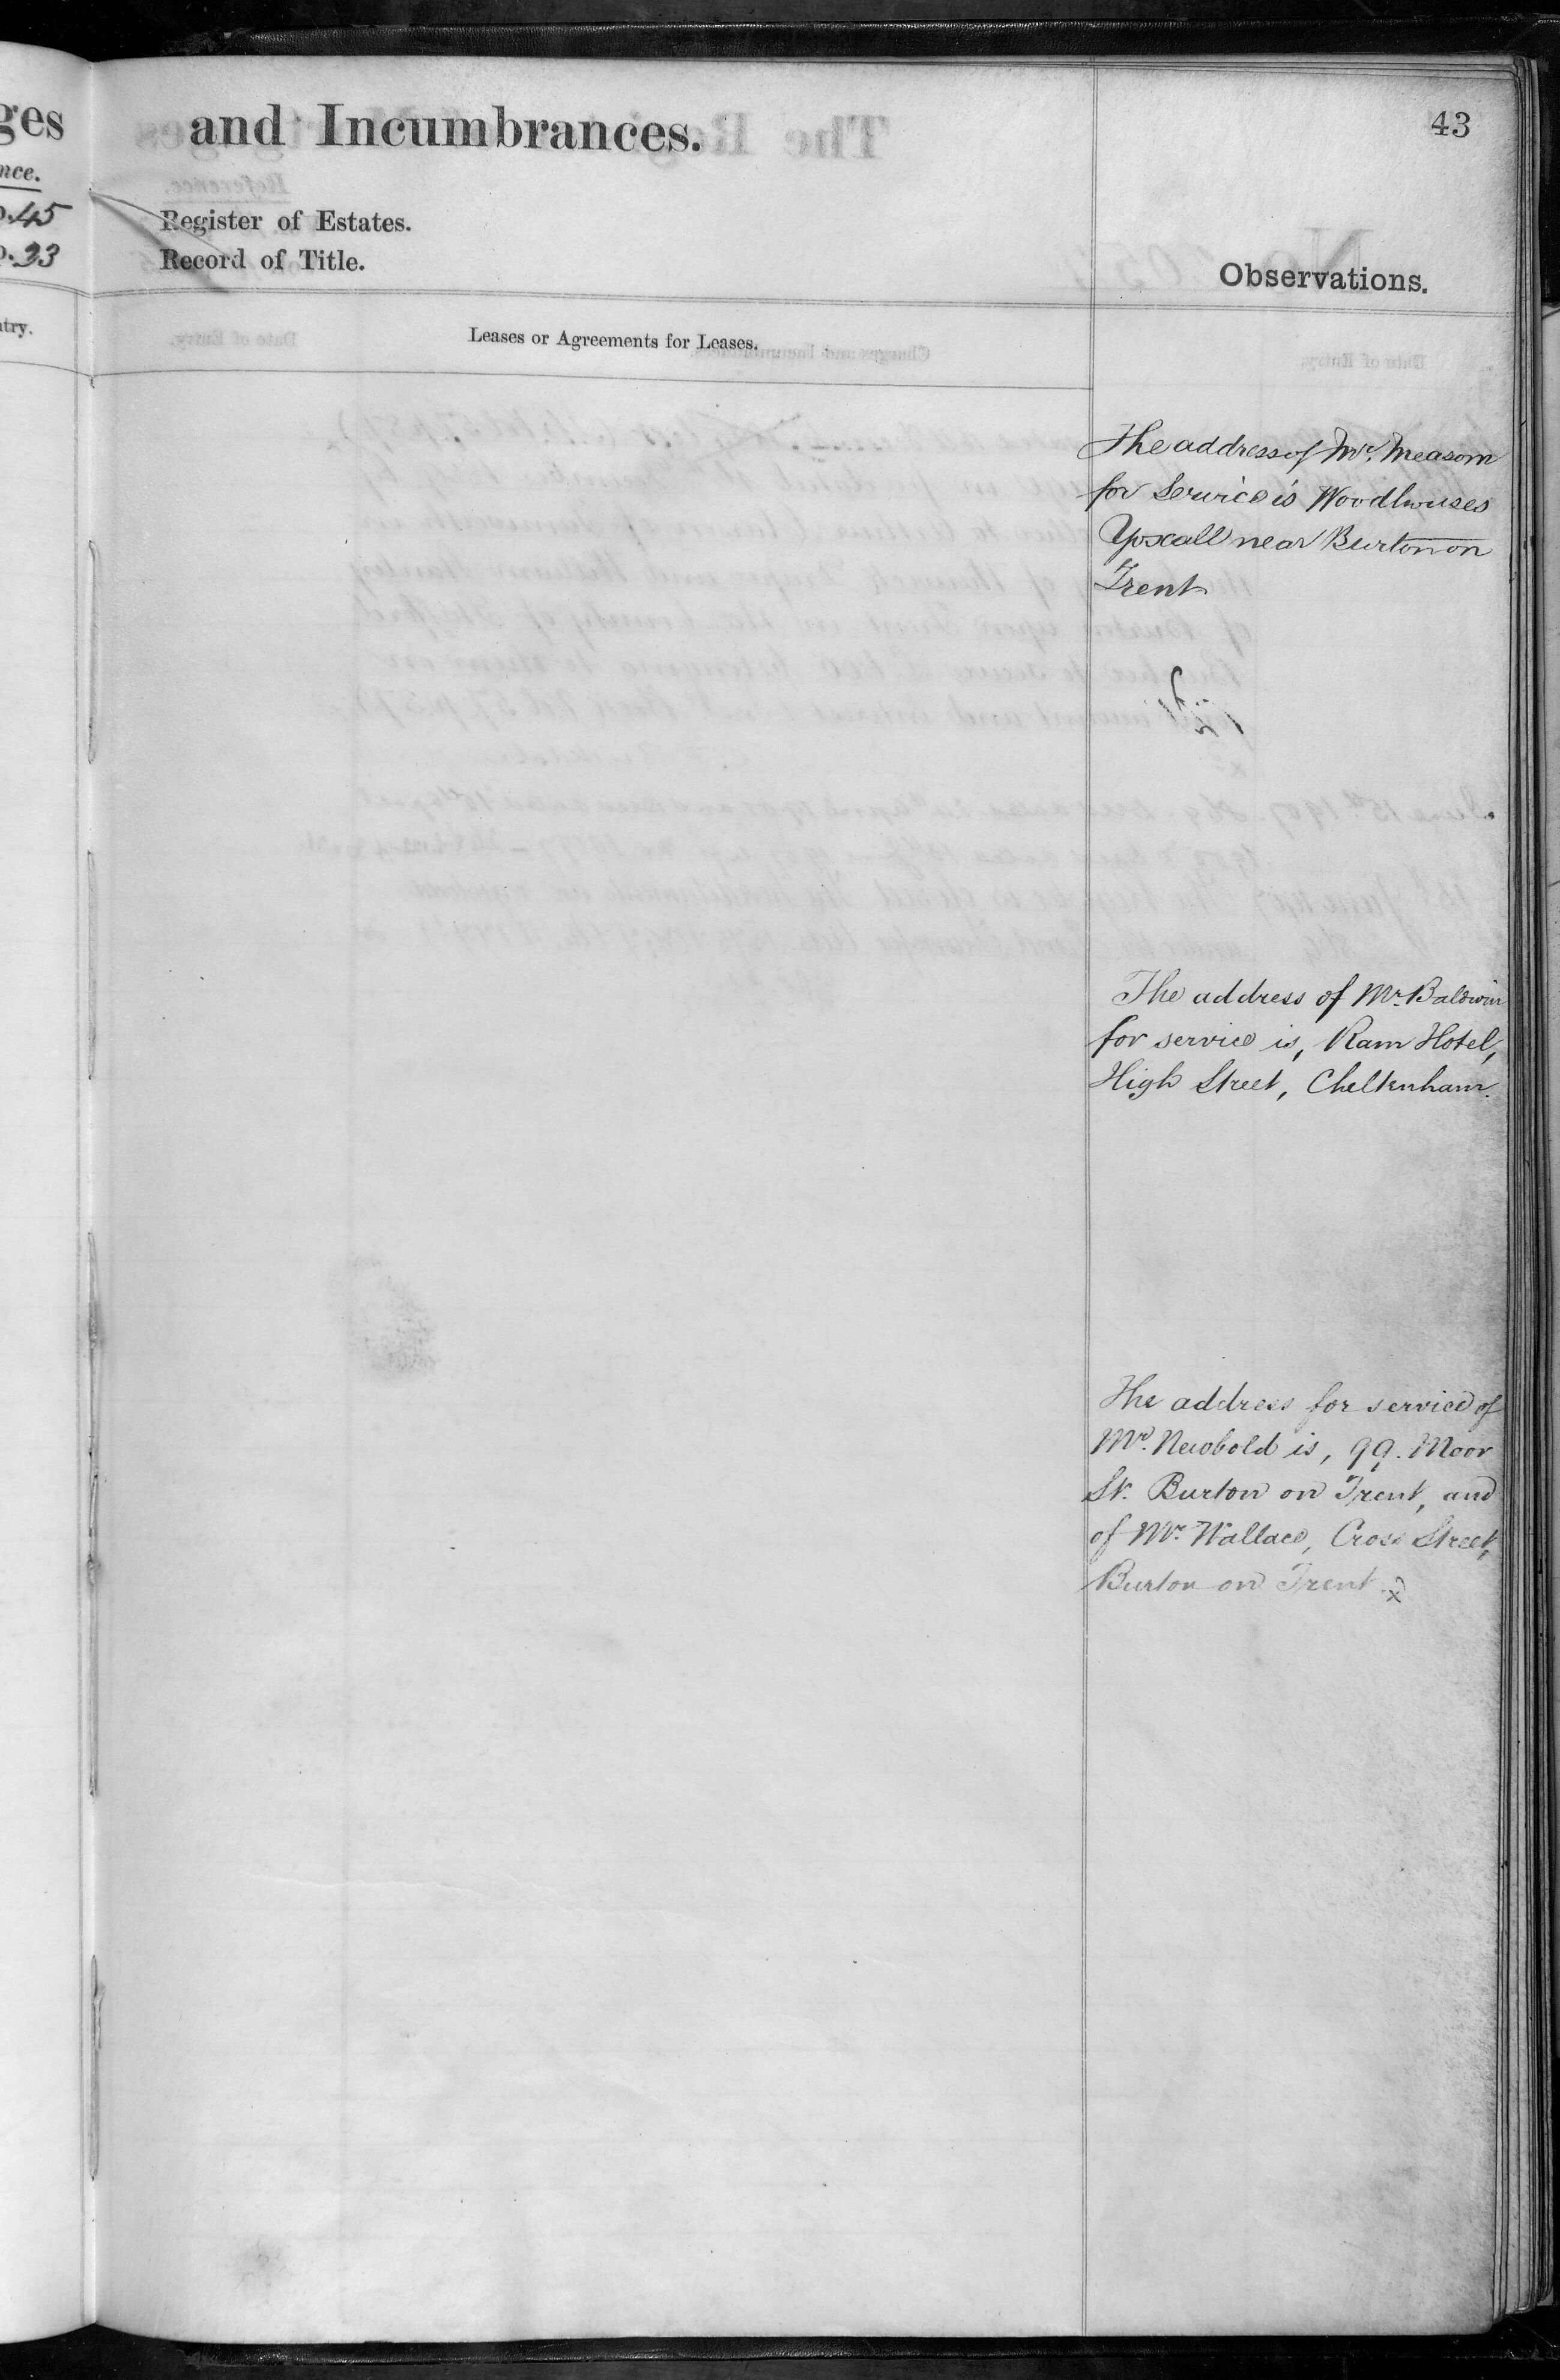 ges
nce.
p.45
p.33
try.
and Incumbrances.
43
Register of Estates.
Record of Title.
Observations.
Leases or Agreements for Leases.
The address of Mr. Measom
for Service is Woodhouses
Yoxall near Burton on
Trent
The address of Mr. Baldwin
for service is, Ram Hotel,
High Street, Cheltenham.
The address for service of
Mr. Newbold is, 99. Moor
St. Burton on Trent, and
of Mr. Wallace, Cross Street,
Burton on Trent. x